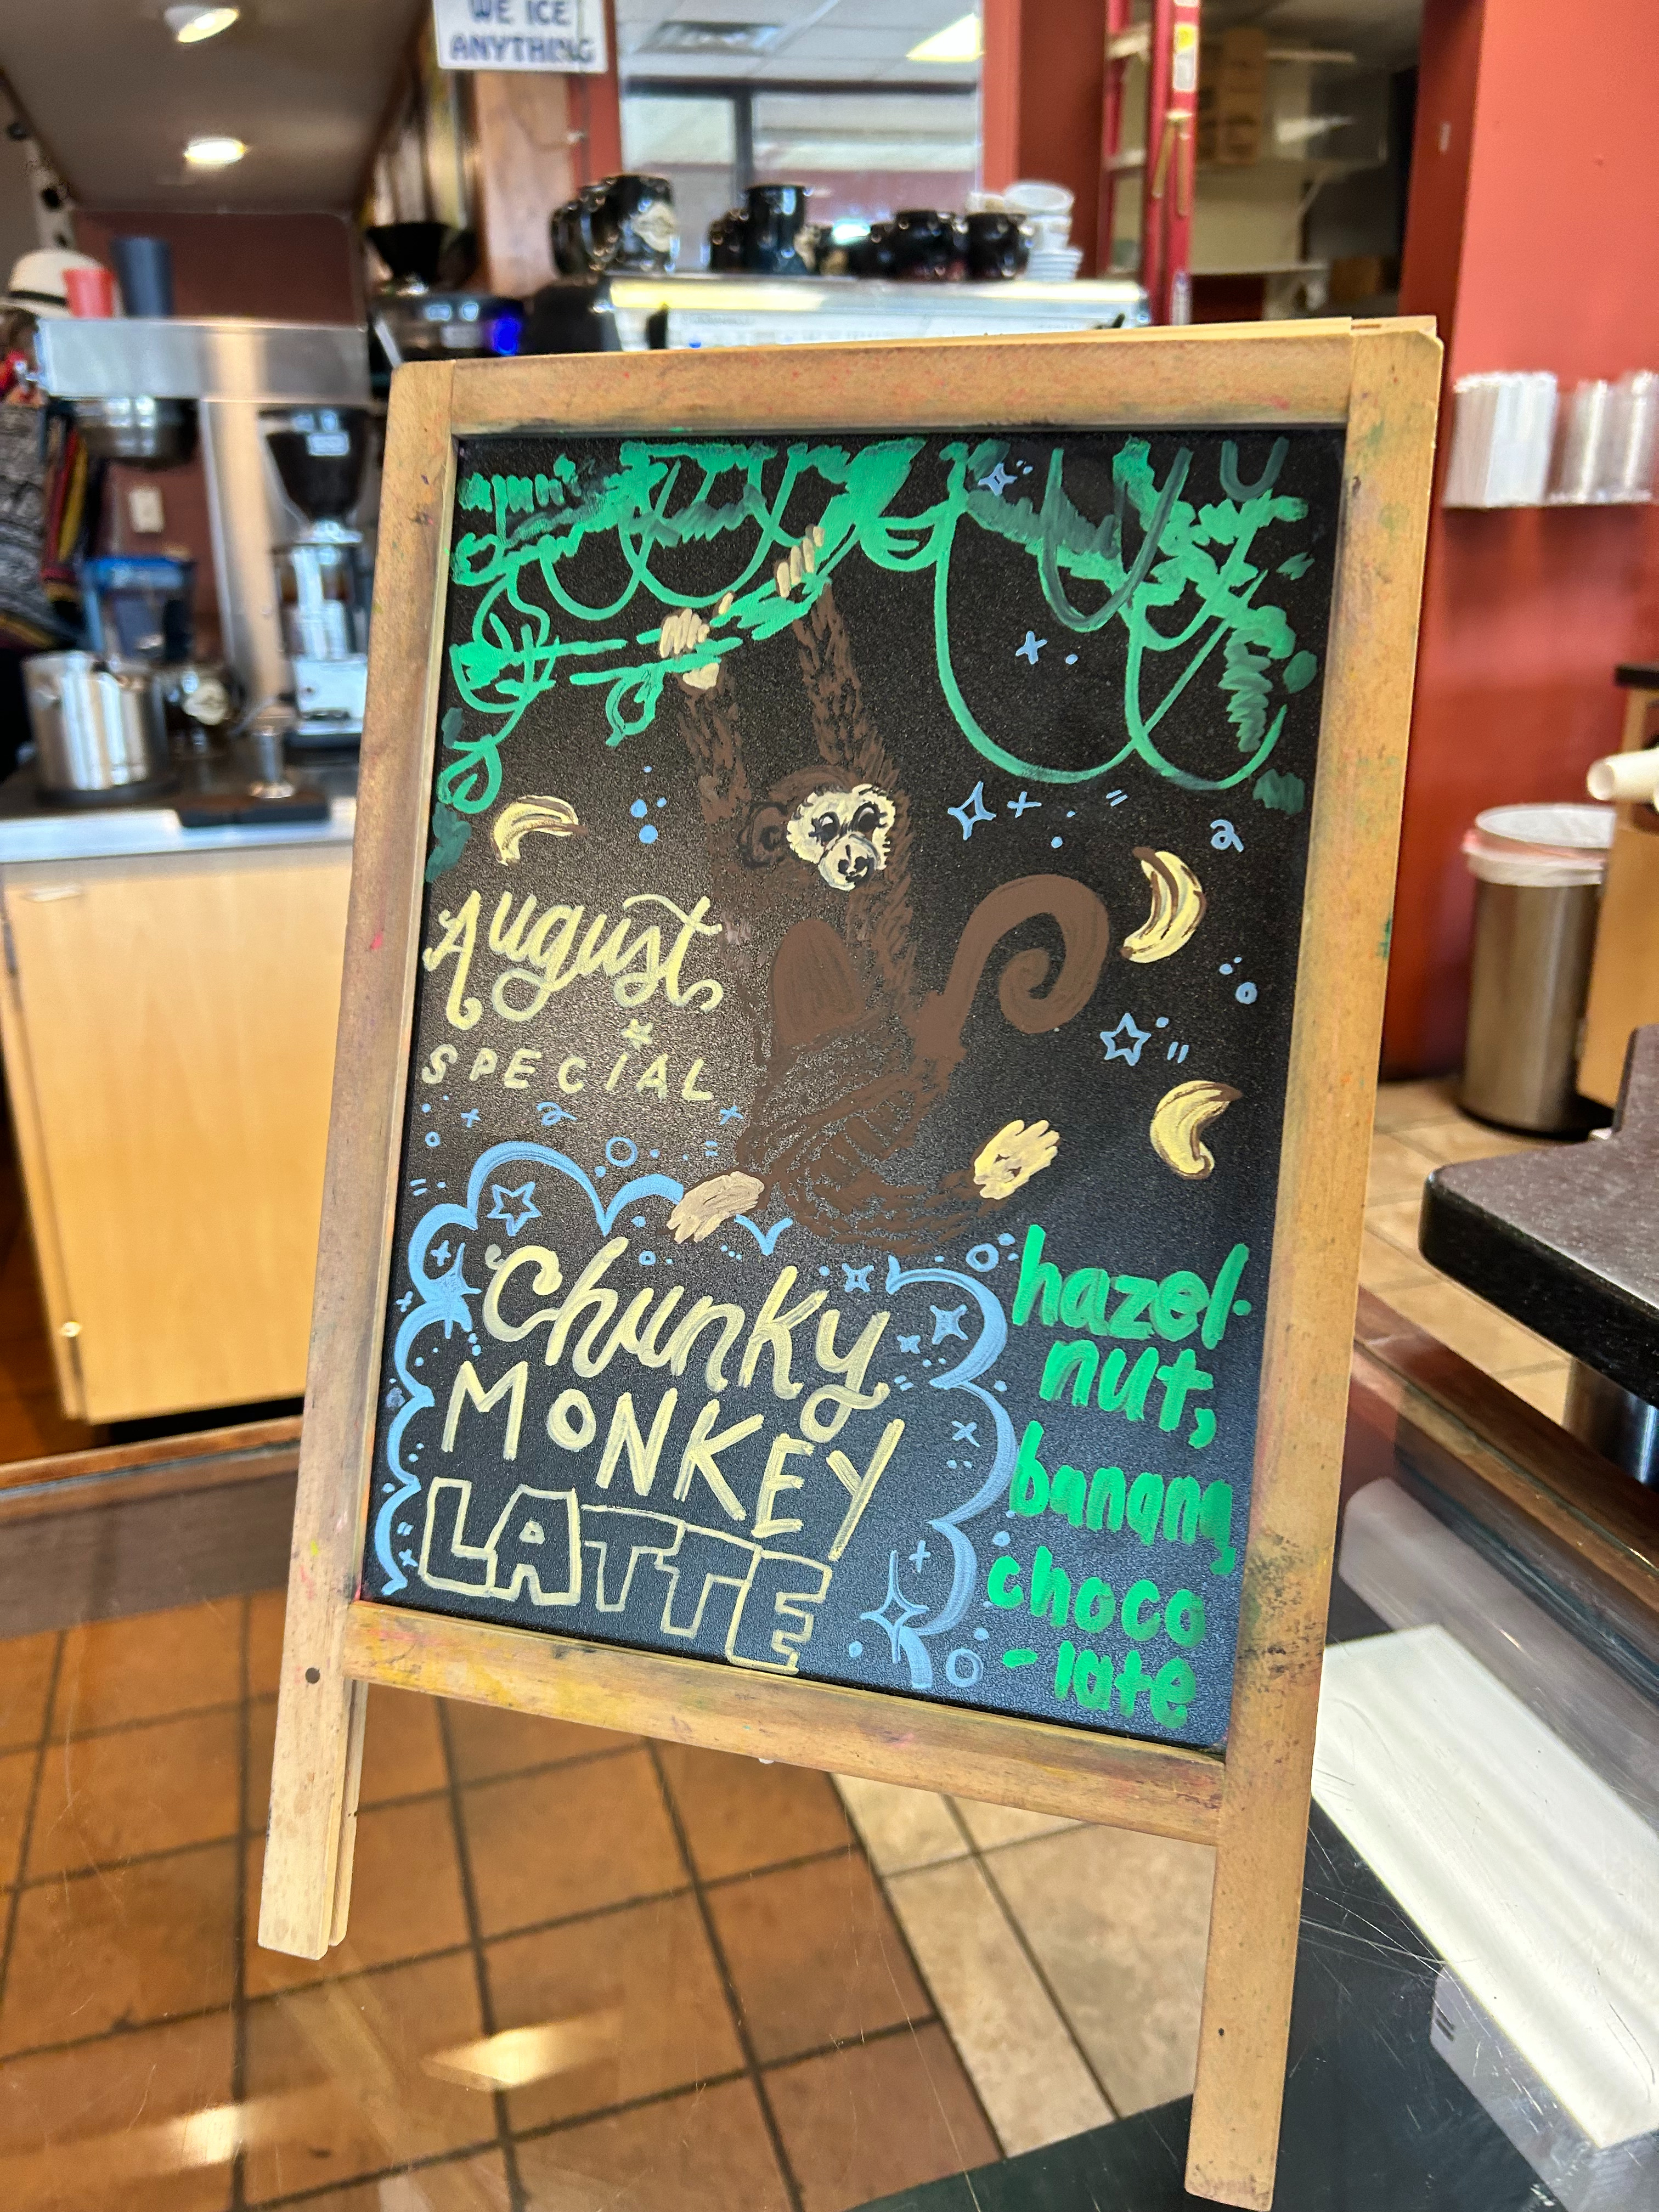 WE ICE
ANYTHING
August
SPECIAL
Chunky
MONKEY
LATTE
hazel-
nut,
banana,
choco
-late